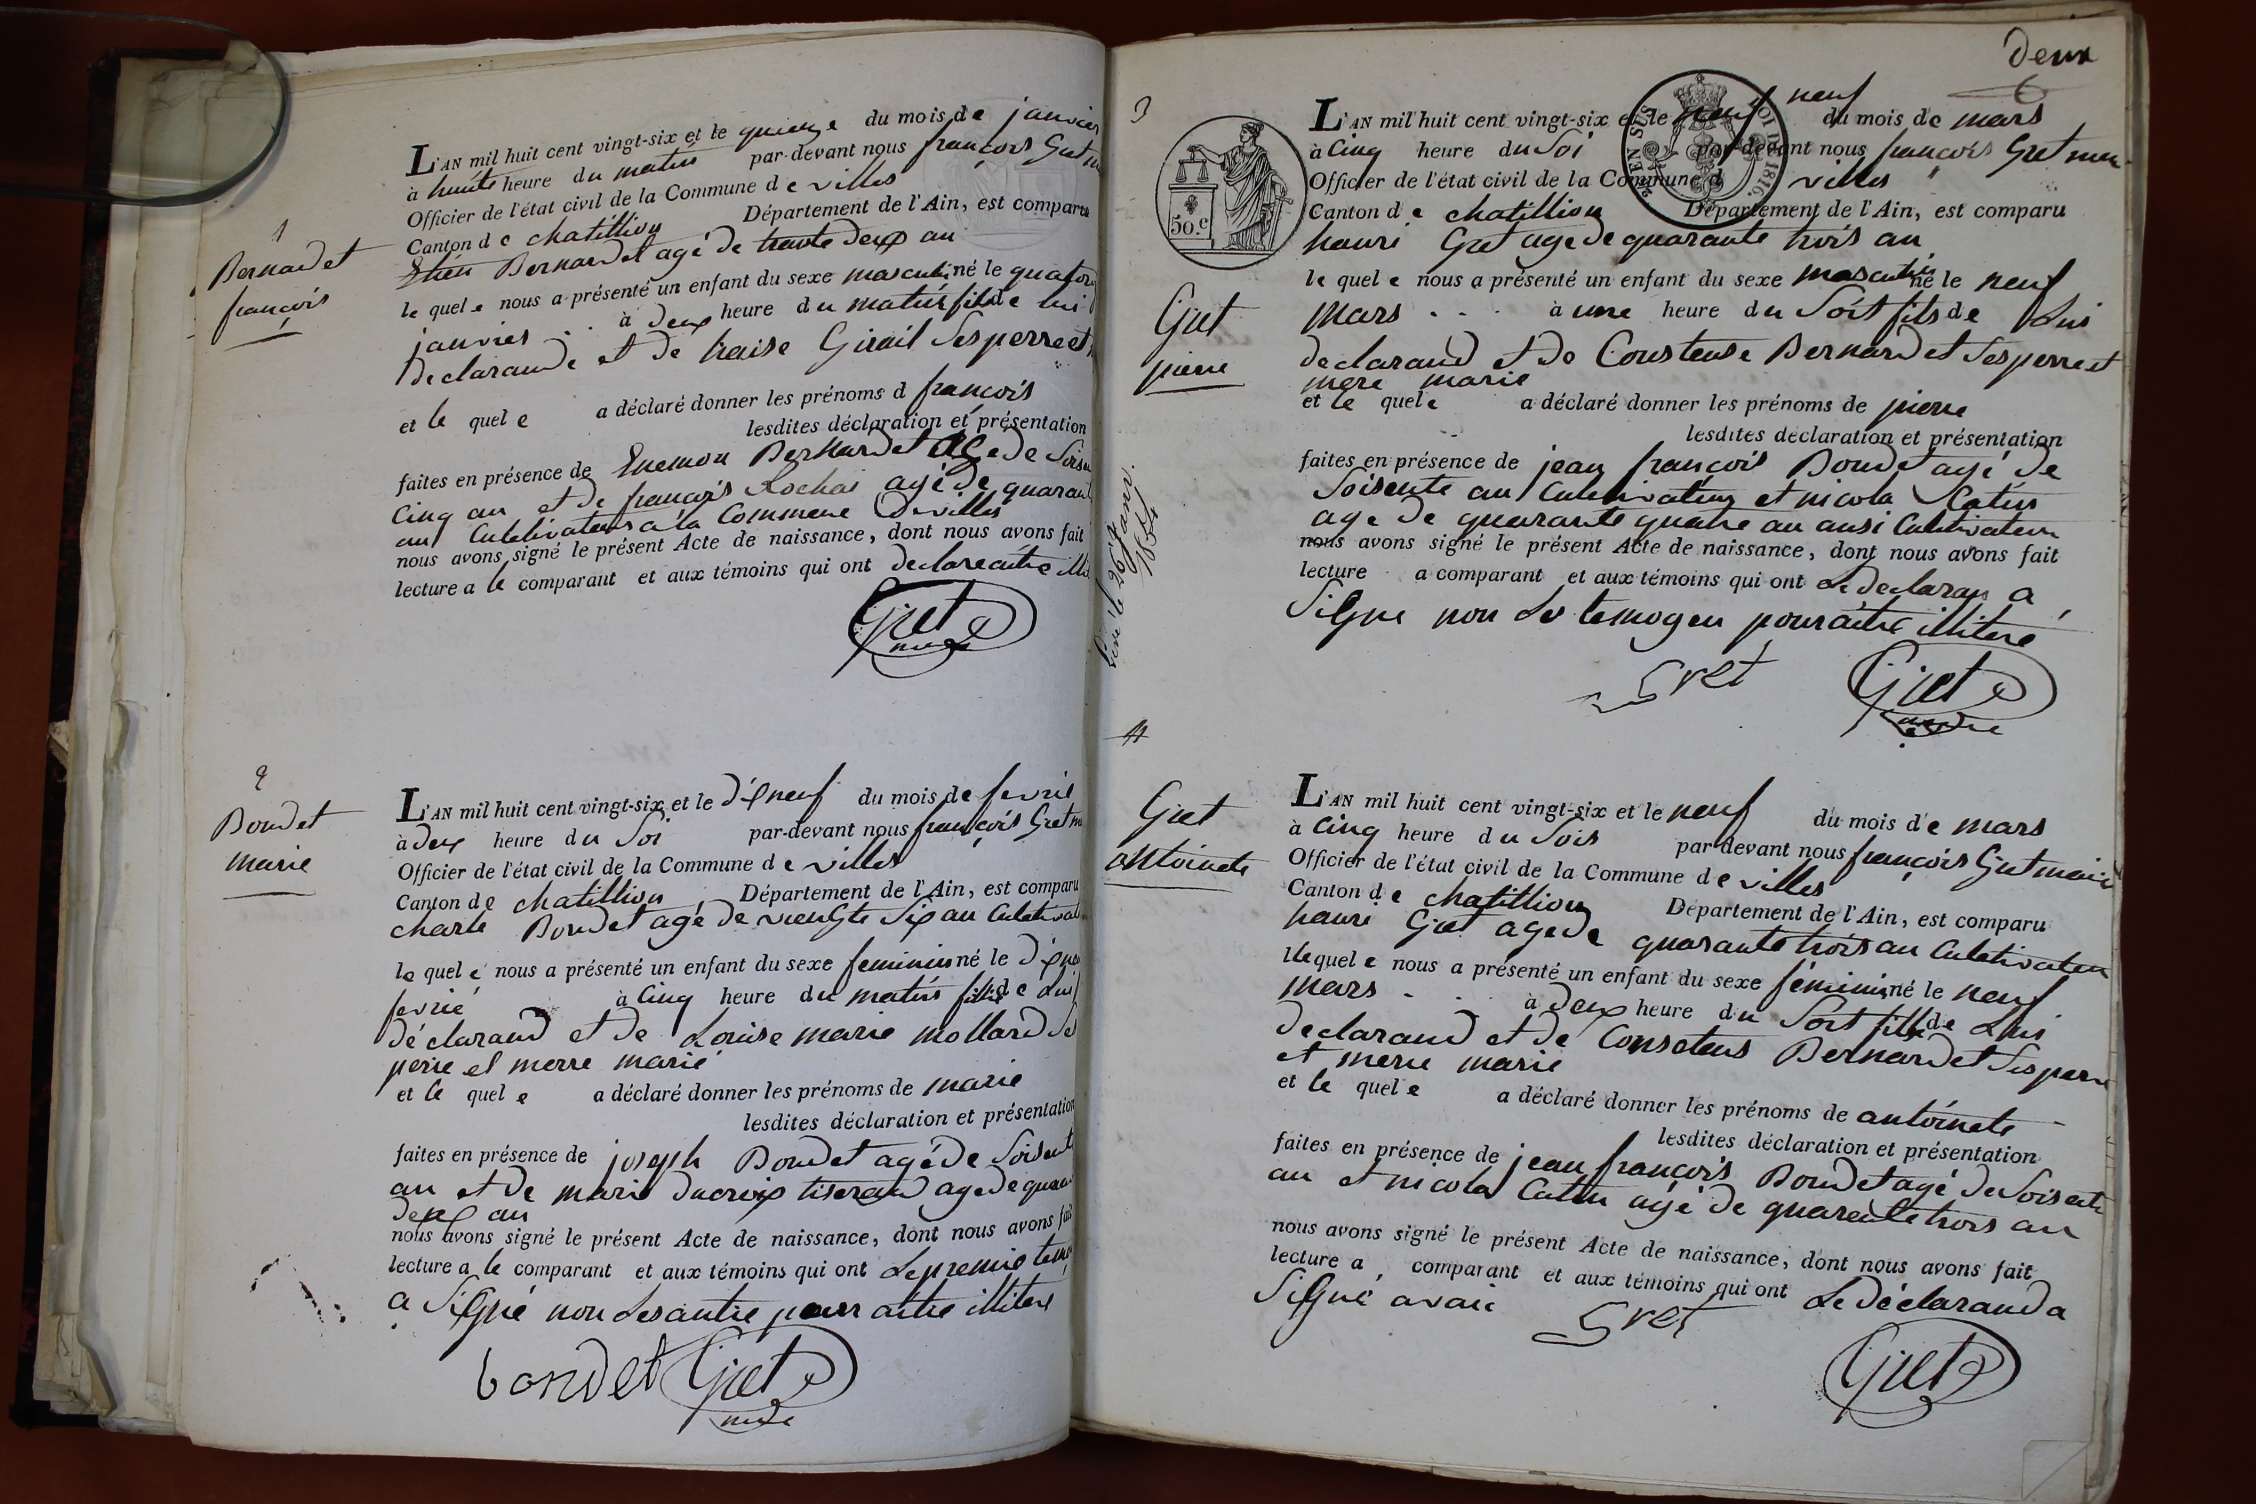 1
Bernardet
françois
L'AN mil huit cent vingt-six et le quienze du mois de janvier
à huite heure du matin par-devant nous françois Gret
Officier de l'état civil de la Commune de villes
Canton de chatillion Département de l'Ain, est comparu
Bernardet agé de trante deux an
le quel e nous a présenté un enfant du sexe masculin né le quatorz
janvier . . à deux heure du matin fils de lui
declarande et de Girail Ses perre et
et le quel e a déclaré donner les prénoms d françois
lesdites déclaration et présentation
faites en présence de Enemon Bernardet agé de Soisen
Cinq an et de françois Rochai agé de quarant
an Culetivateurs à la Commune de villes
nous avons signé le présent Acte de naissance, dont nous avons fait
lecture a le comparant et aux témoins qui ont declare aitre illi
Gret
2
Bondet
marie
L'AN mil huit cent vingt-six et le dixneuf du mois de fevrié
à deux heure du Soi par-devant nous françois Gret m
Officier de l'état civil de la Commune de villes
Canton de chatillion Département de l'Ain, est comparu
charle Bondet agé de viengte Six an Culetivat
le quel e nous a présenté un enfant du sexe feminin né le dixneu
fevrié à Cinq heure du matin fille de Lui
déclarand et de Louise marie mollard Se
perre et merre marié
et le quel e a déclaré donner les prénoms de marie
lesdites déclaration et présentation
faites en présence de joseph Bondet agé de Soisente
an et de marie ducroix tiserand agé de quara
deux an
nous avons signé le présent Acte de naissance, dont nous avons fait
lecture a le comparant et aux témoins qui ont Le premie temo
a Signé non Les autre pour aitre illitere
bondet Gret
deux
6
3
Gret
pierre
50.C
L'AN mil huit cent vingt-six et le neuf neuf du mois de mars
à Cinq heure du Soi par-devant nous françois Gret
Officier de l'état civil de la Commune d villes
Canton de chatillion Département de l'Ain, est comparu
hanri Gret age de quarante trois an
le quel e nous a présenté un enfant du sexe masculin né le neuf
mars . . . à une heure du Soit fils de Lui
declarand et de Constense Bernardet Ses perre et
mere marie
et le quel e a déclaré donner les prénoms de pierre
lesdites déclaration et présentation
faites en présence de jean françois Bondet agé de
Soisente an Culetivateur et nicola Catin
age de quarante quatre an ausi Culetivateur
nous avons signé le présent Acte de naissance, dont nous avons fait
lecture a comparant et aux témoins qui ont Le declaran a
Signe non Le temogen pour aitre illitere
Gret Gret
4
Gret
antoinete
L'AN mil huit cent vingt-six et le neuf du mois de mars
à Cinq heure du Sois par-devant nous françois Gret maire
Officier de l'état civil de la Commune de villes
Canton de chatillion Département de l'Ain, est comparu
hanri Gret age de quarante trois an Culetivateur
le quel e nous a présenté un enfant du sexe féminin né le neuf
mars . . . à deux heure du Soit fille de Lui
declarand et de Consetens Bernardet Ses perre
et merre marie
et le quel e a déclaré donner les prénoms de antoinete
lesdites déclaration et présentation
faites en présence de jean françois Bondet agé de Soisente
an et nicola Catin agé de quarente trois an
nous avons signé le présent Acte de naissance, dont nous avons fait
lecture a comparant et aux témoins qui ont Le déclarand a
Signé avaie
Gret Gret